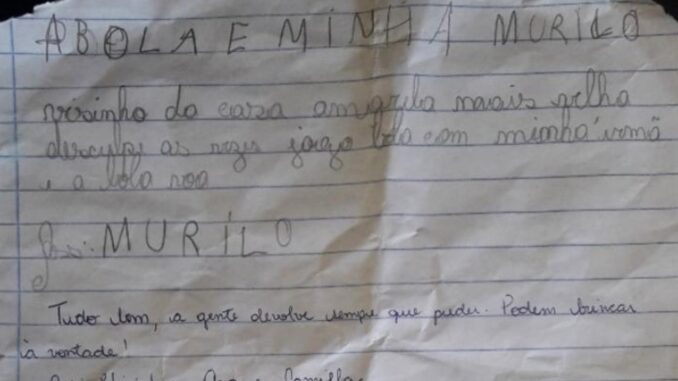 A BOLA E MINHA MURILO
visinho da casa amarela mais velha
desculpe as vezes jogo bola com minha irmã
e a bola voa
Ass: MURILO
Tudo bem, a gente devolve sempre que puder. Podem brincar
à vontade!